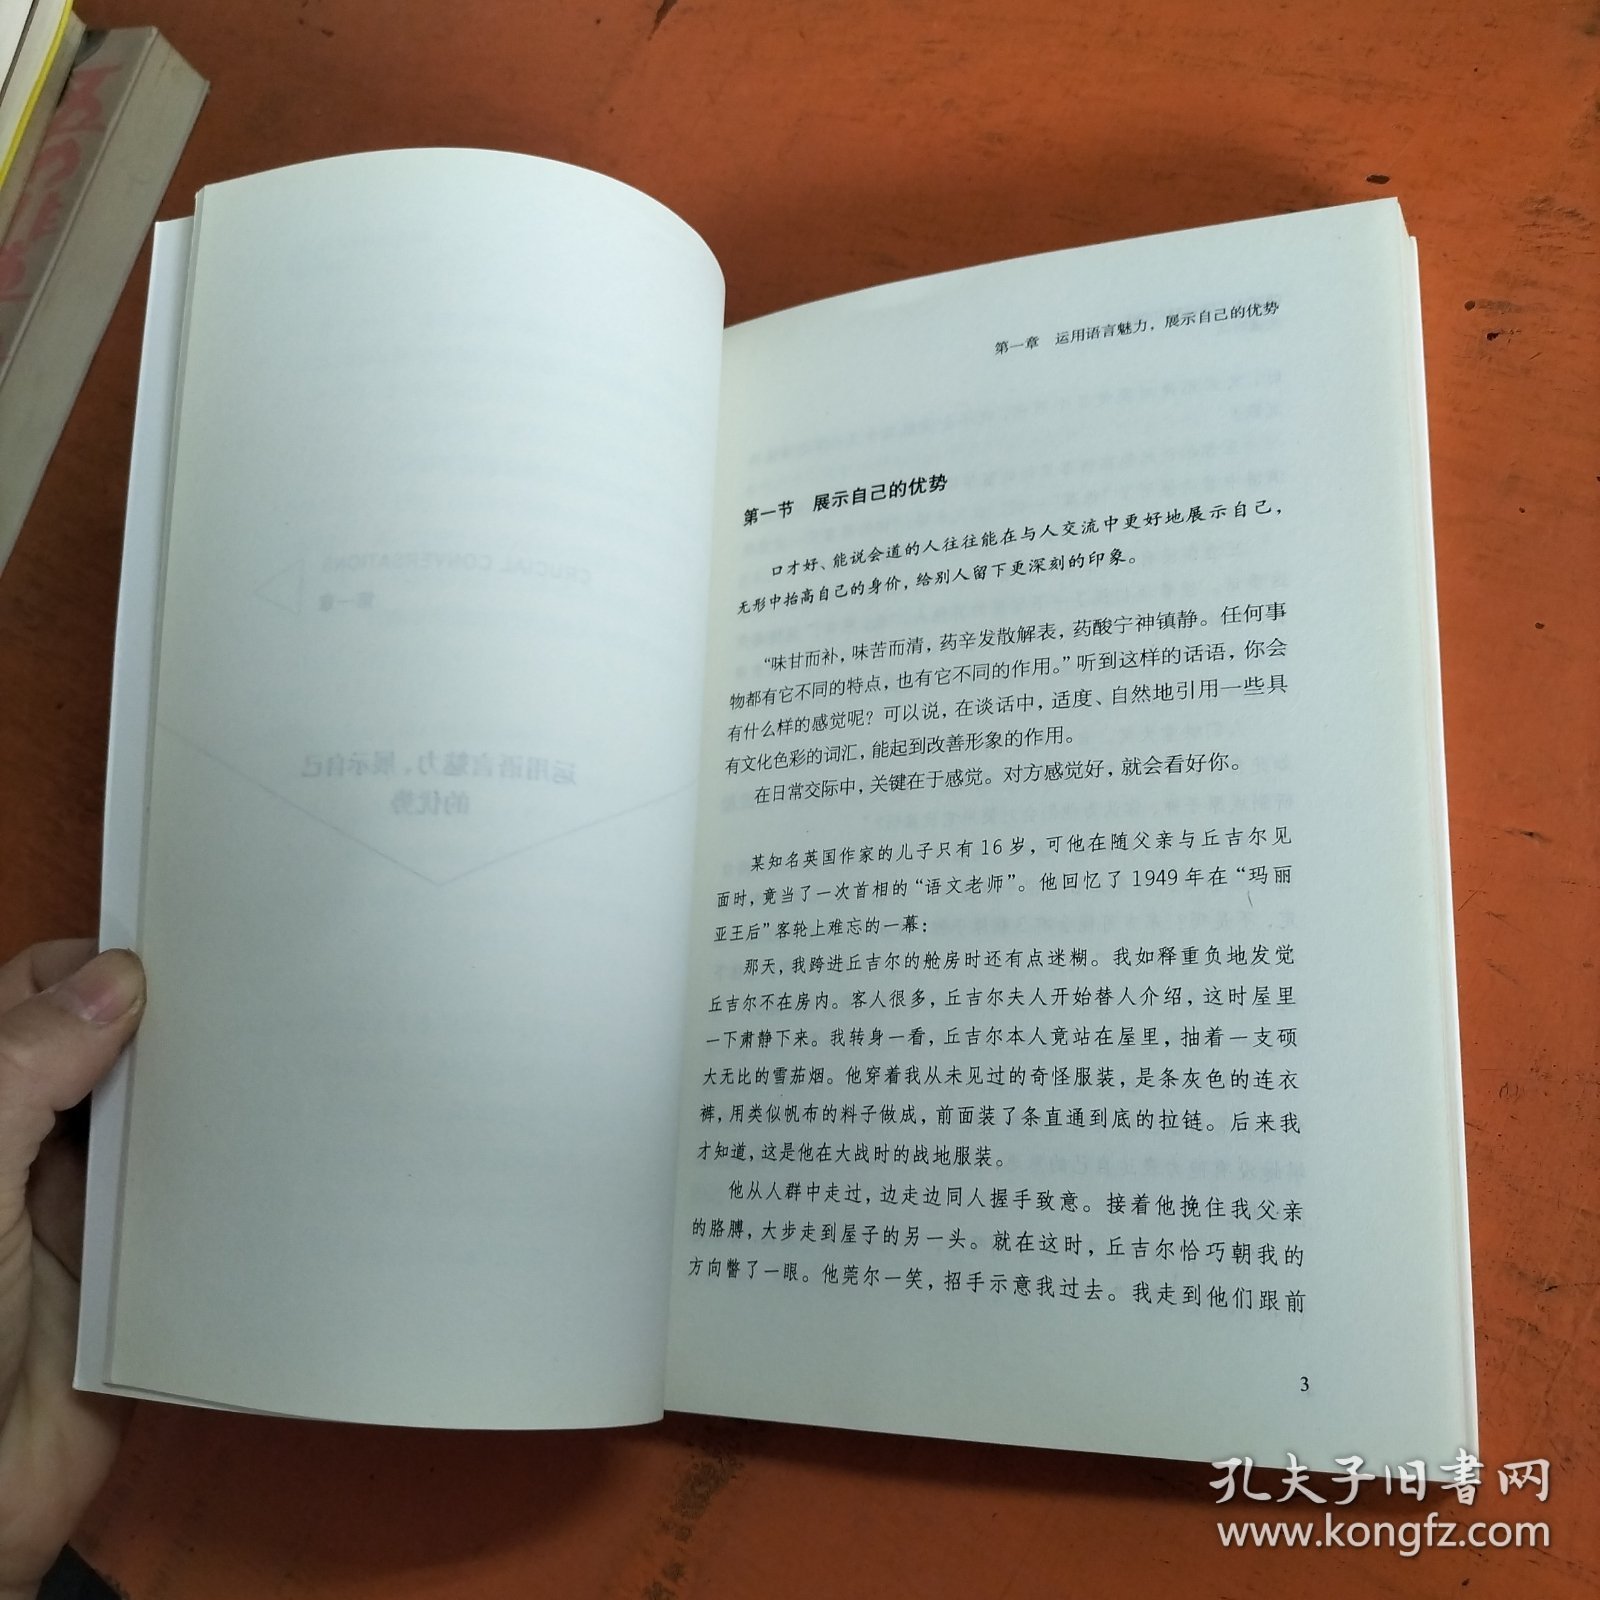 第一章 运用语言魅力，展示自己的优势
第一节 展示自己的优势
口才好、能说会道的人往往能在与人交流中更好地展示自己，
无形中抬高自己的身价，给别人留下更深刻的印象。
“味甘而补，味苦而清，药辛发散解表，药酸宁神镇静。任何事
物都有它不同的特点，也有它不同的作用。”听到这样的话语，你会
有什么样的感觉呢？可以说，在谈话中，适度、自然地引用一些具
有文化色彩的词汇，能起到改善形象的作用。
在日常交际中，关键在于感觉。对方感觉好，就会看好你。
某知名英国作家的儿子只有16岁，可他在随父亲与丘吉尔见
面时，竟当了一次首相的“语文老师”。他回忆了1949年在“玛丽
亚王后”客轮上难忘的一幕：
那天，我跨进丘吉尔的舱房时还有点迷糊。我如释重负地发觉
丘吉尔不在房内。客人很多，丘吉尔夫人开始替人介绍，这时屋里
一下肃静下来。我转身一看，丘吉尔本人竟站在屋里，抽着一支硕
大无比的雪茄烟。他穿着我从未见过的奇怪服装，是条灰色的连衣
裤，用类似帆布的料子做成，前面装了条直通到底的拉链。后来我
才知道，这是他在大战时的战地服装。
他从人群中走过，边走边同人握手致意。接着他挽住我父亲
的胳膊，大步走到屋子的另一头。就在这时，丘吉尔恰巧朝我的
方向瞥了一眼。他莞尔一笑，招手示意我过去。我走到他们跟前
3
CRUCIAL CONVERSATIO
第一章
运用语言魅力，展示自己
的优势
孔夫子旧书网
www.kongfz.com